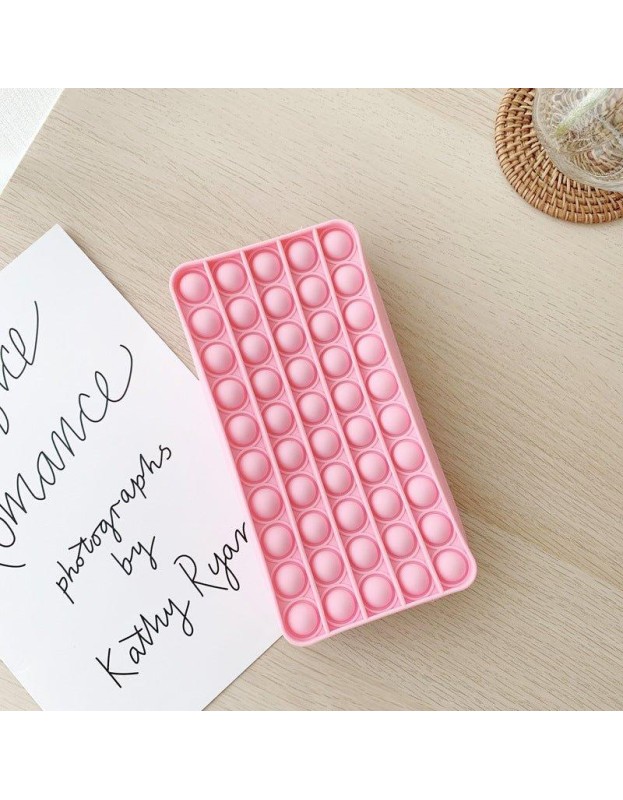 romance
photographs
by
Kathy Ryan